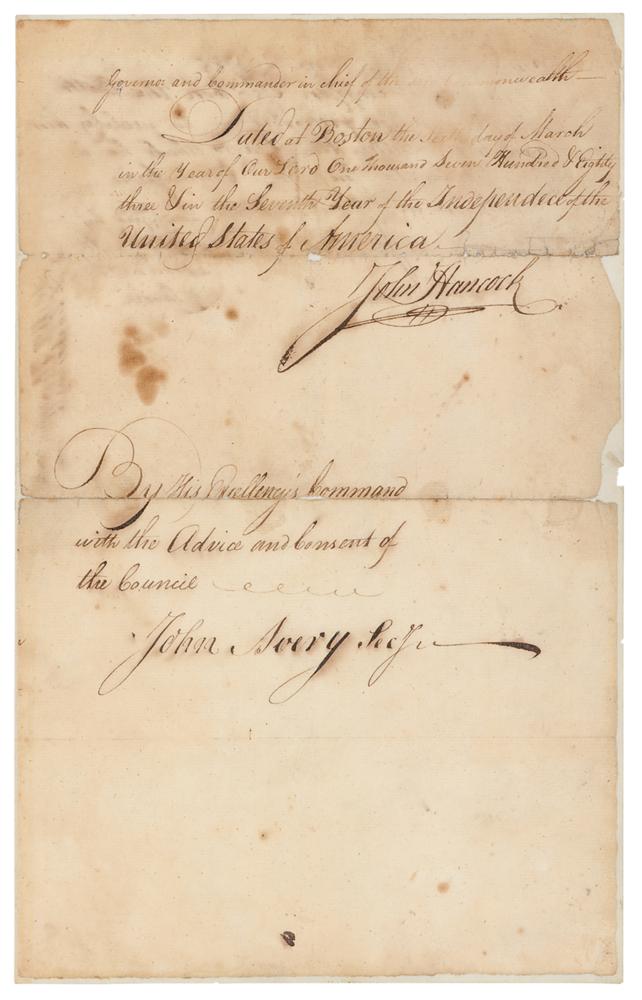 Governor and Commander in chief of the
Dated at Boston the day of March
in the Year of Our Lord One Thousand Sevent Hundred & Eighty
three & in the Seventh Year of the Independece of the
United States of America
John Hancock
By His Excellency's Command
with the Advice and Consent of
the Council
John Avery Secy